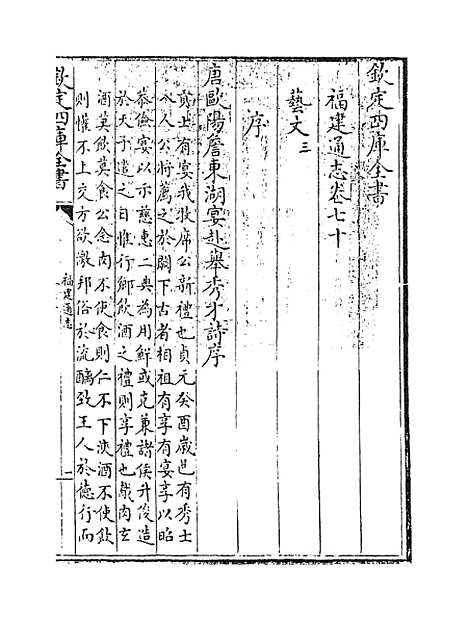 欽定四庫全書
福建通志卷七十
藝文三
序
唐歐陽詹東湖宴赴舉秀才詩序
貢士有宴我牧席公新禮也貞元癸酉歲邑有秀士
八人公將薦之於闕下古者相祖有享有宴享以昭
恭儉宴以示慈惠二典為用鮮或克兼諸侯升俊造
於天子遣之日惟行鄉飲酒之禮則享禮也胾肉玄
酒莫飲莫食公念肉不使食則仁不下浹酒不使飲
則懽不上交方欲激邦俗於流醨致王人於德行而
欽定四庫全書
福建通志
一